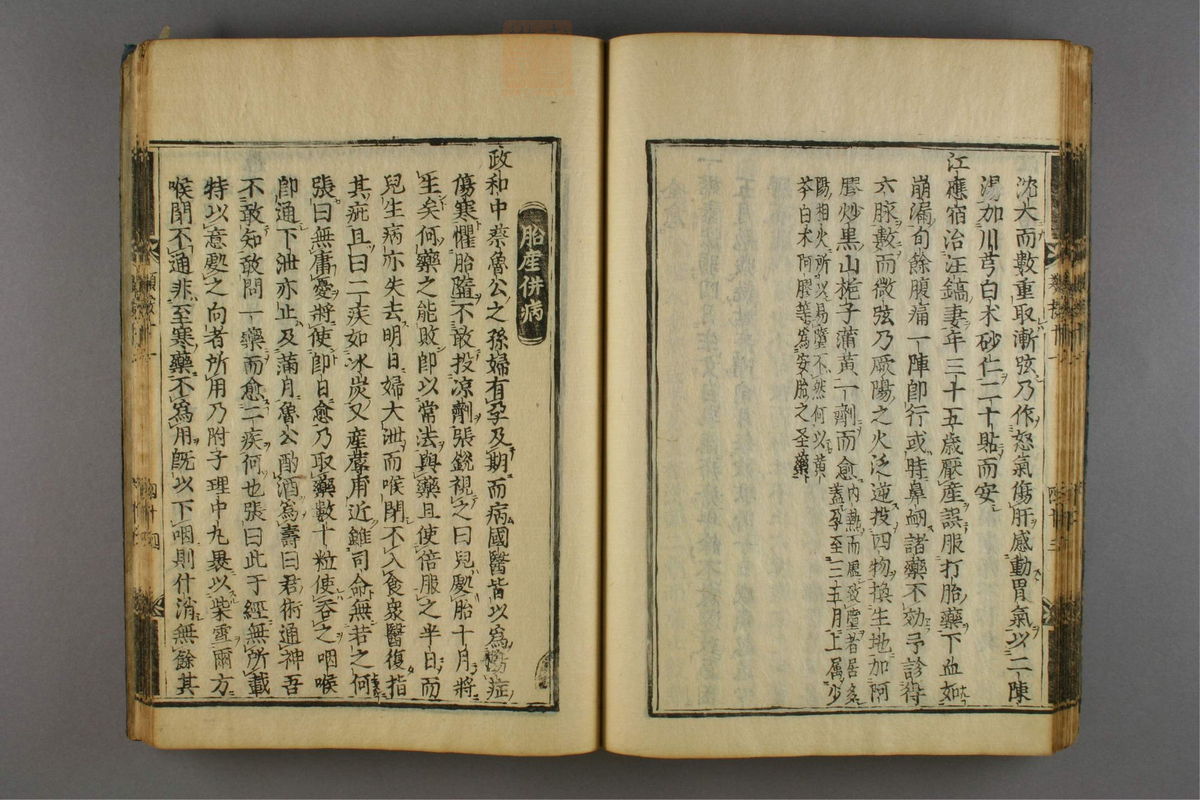 沈大而數重取漸弦乃作怒氣傷肝感動胃氣以二陳
湯加川芎白朮砂仁二十貼而安
江應宿治汪鎬妻年三十五歲厭產誤服打胎藥下血如
崩漏旬餘腹痛一陣卽行或時鼻衂諸藥不効予診得
六脉數而微弦乃厥陽之火泛逆投四物換生地加阿
膠炒黑山梔子蒲黃一劑而愈
內熱而虛致墮者居多
蓋孕至三五月上属少
陽相火所以易墮不然何以黃
芩白朮阿膠等爲安胎之圣藥
胎產倂病
政和中蔡魯公之孫婦有孕及期而病國醫皆以爲症
傷寒懼胎墮不敢投凉劑張銳視之曰兒處胎十月將
生矣何藥之能敗卽以常法與藥且使倍服之半日而
兒生病亦失去明日婦大泄而喉閉不入食衆醫復指
其疵且曰二疾如冰炭又產蓐甫近雖司命無若之何
張曰無庸憂將使卽日愈乃取藥數十粒使吞之咽喉
卽通下泄亦止及滿月魯公酌酒爲壽曰君術通神吾
不敢知敢問一藥而愈二疾何也張曰此于經無所載
特以意處之向者所用乃附子理中丸裹以紫雪爾方
喉閉不通非至寒藥不爲用旣以下咽則什消無餘其